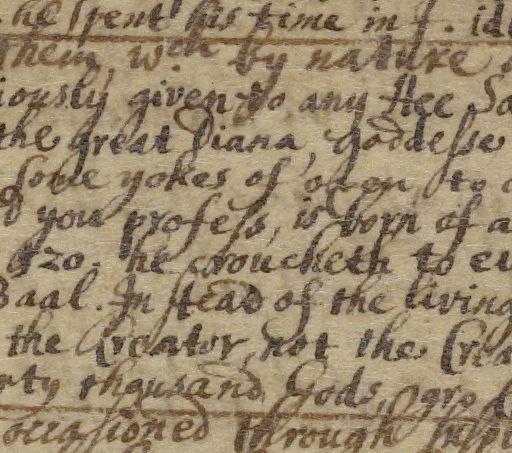 he spent his time in f. idl
them, wch by nature
iously given to any Hee Sa
the great Diana, goddesse
some yokes of oxen, to
you professe, is born of a
920. he croucheth to eu
Baal. In stead of the living
the Creator, not the Crea
rty thousand Gods, gro
occasioned through supe